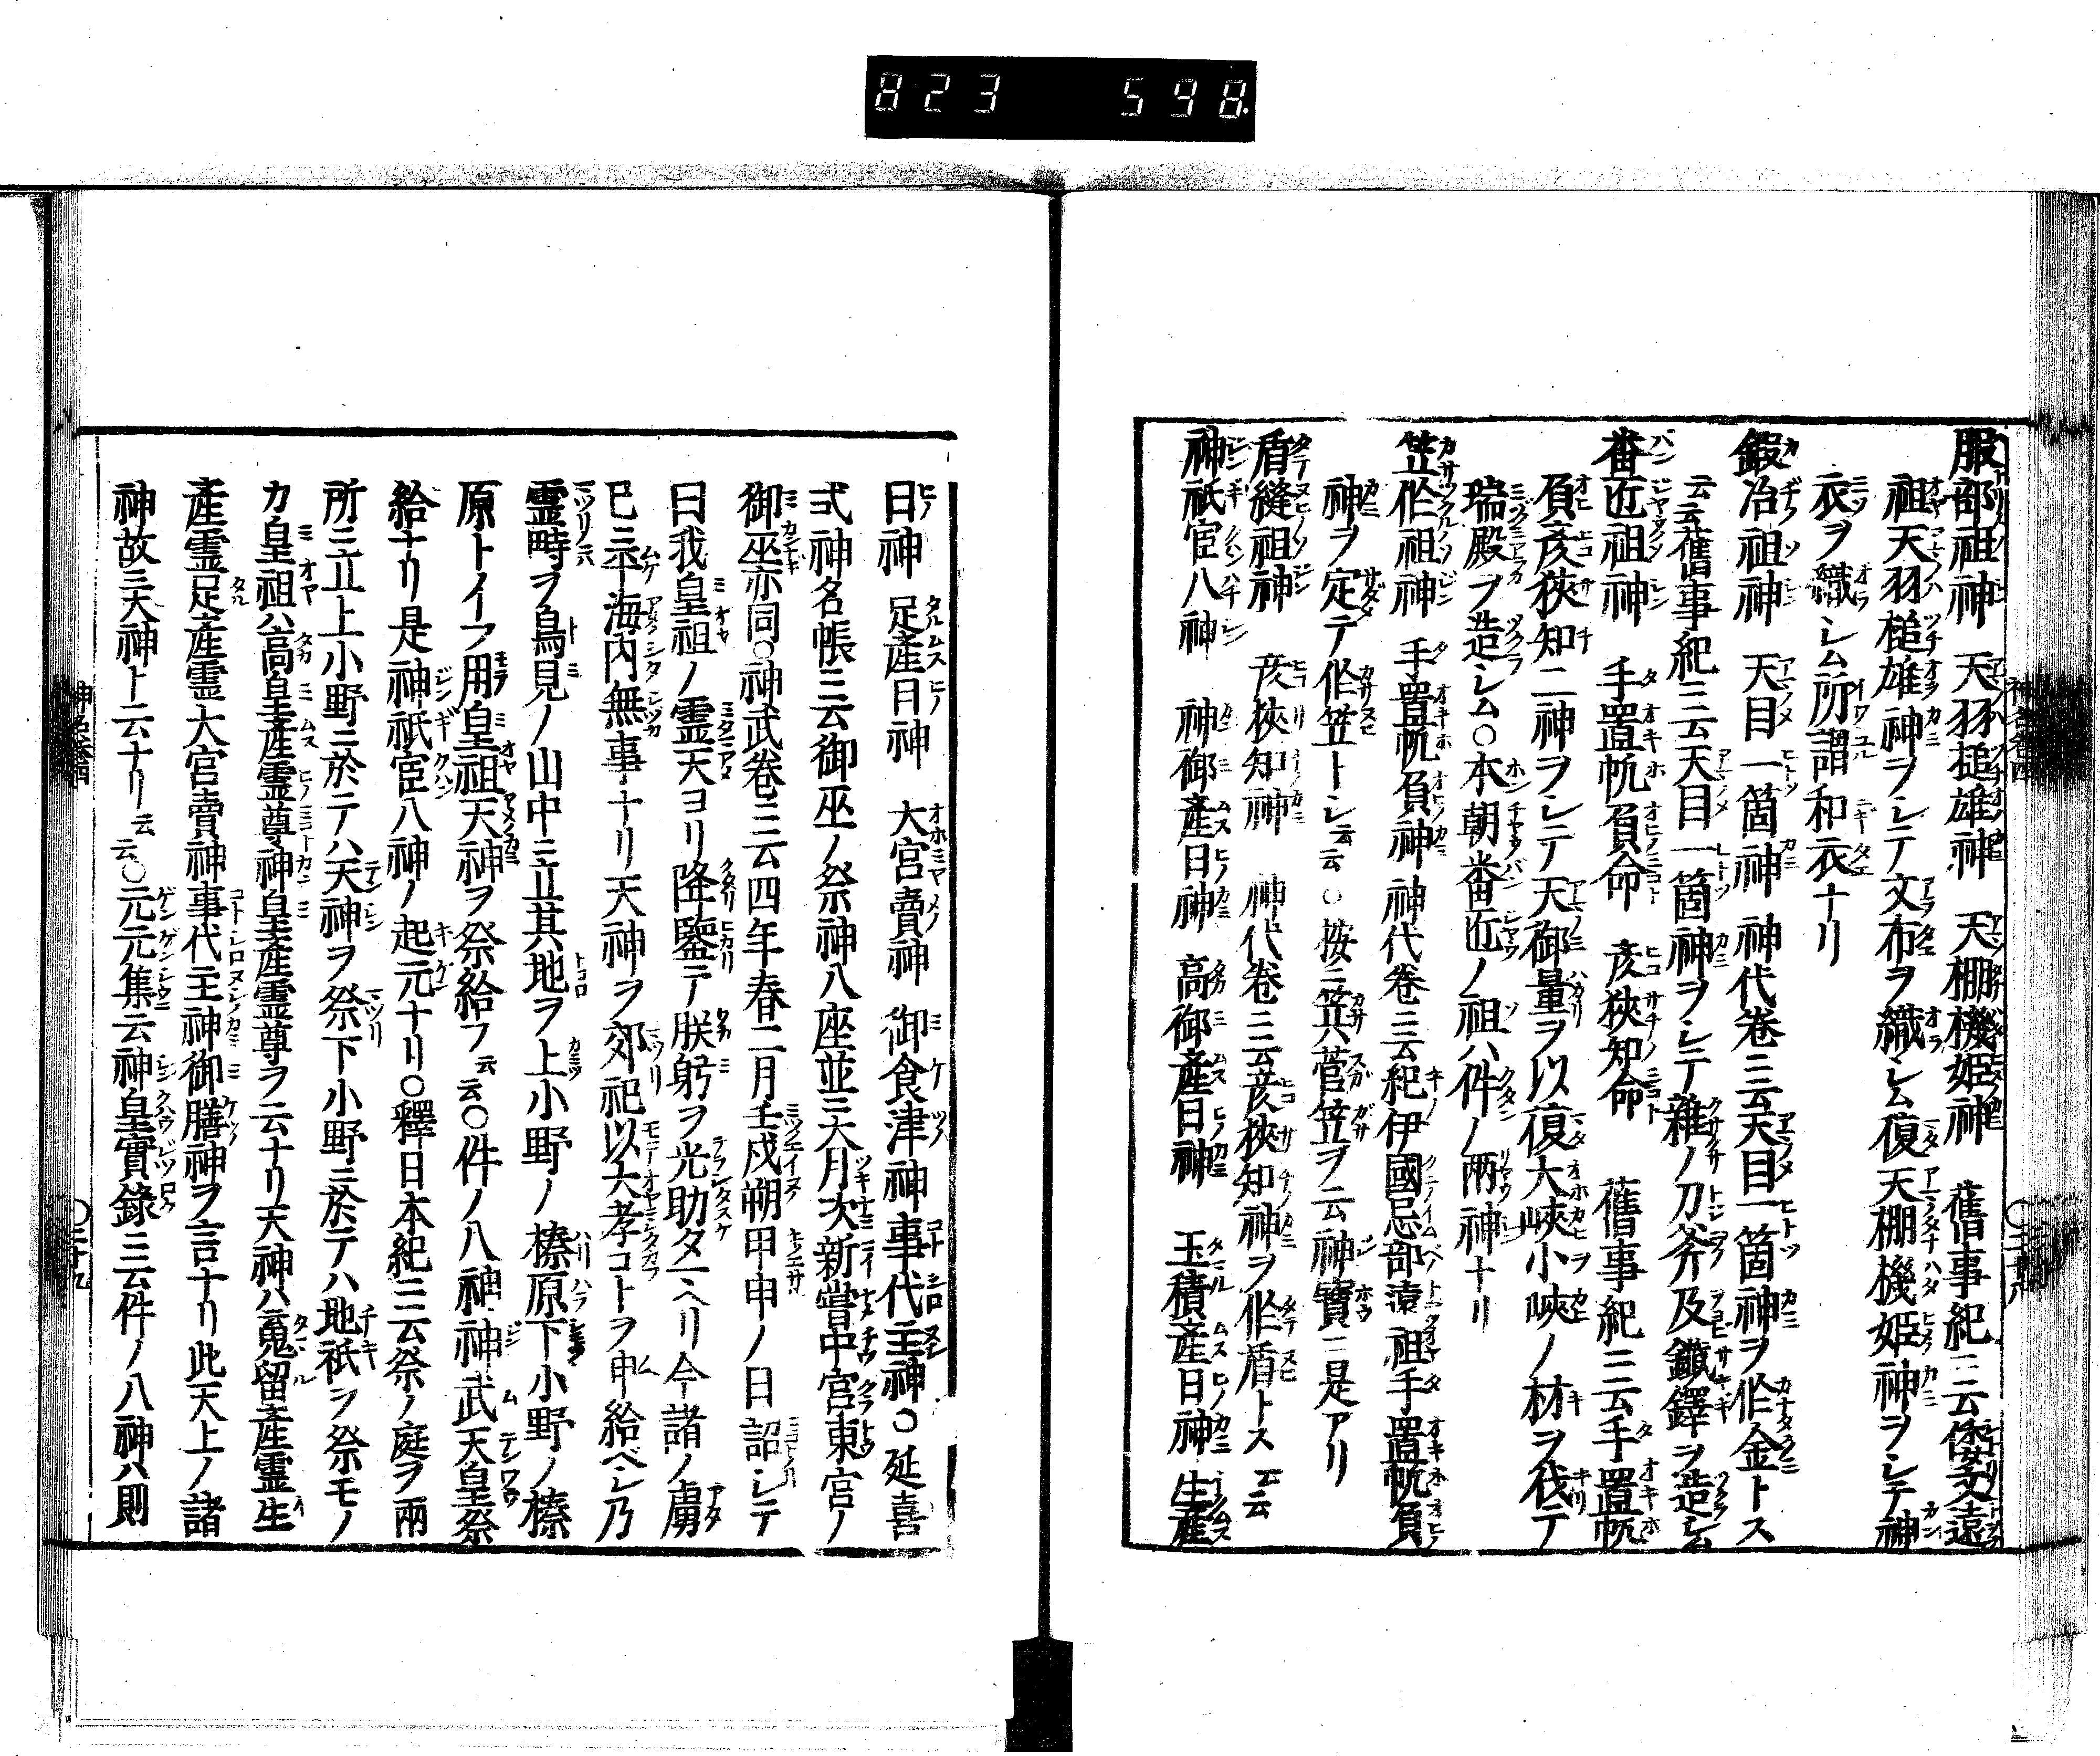 823 598.
服部祖神 天羽槌雄神 天棚機姫神 舊事紀ニ云倭文遠
祖天羽槌雄神ヲシテ文布ヲ織シム復天棚機姫神ヲシテ神
衣ヲ織シム所謂和衣ナリ
鍜冶祖神 天目一箇神 神代巻ニ云天目一箇神ヲ作金トス
云云舊事紀ニ云天目一箇神ヲシテ雜ノ刀斧及鐵鐸ヲ造シム
番匠祖神 手置帆負命 彦狹知命 舊事紀ニ云手置帆
負彦狹知二神ヲシテ天御量ヲ以復大峽小峽ノ材ヲ伐テ
瑞殿ヲ造シム○本朝番匠ノ祖ハ件ノ兩神ナリ
笠作祖神 手置帆負神 神代巻ニ云紀伊國忌部遠祖手置帆負
神ヲ定テ作笠トシ云云○按ニ笠ハ菅笠ヲ云神寶ニ是アリ
盾縫祖神 彦狹知神 神代巻ニ云彦狹知神ヲ作盾トス云云
神祇官八神 神御產日神 高御產日神 玉積產日神 生產
日神 足產日神 大宮賣神 御食津神事代主神○延喜
式神名帳ニ云御巫ノ祭神八座並ニ大月次新嘗中宮東宮ノ
御巫亦同○神武巻ニ云四年春二月壬戌朔甲申ノ日詔シテ
曰我皇祖ノ霊天ヨリ降鑒テ朕躬ヲ光助タマヘリ今諸ノ虜
已ニ平海内無事ナリ天神ヲ郊祀以大孝コトヲ申給ベシ乃
霊畤ヲ鳥見ノ山中ニ立其地ヲ上小野ノ榛原下小野ノ榛
原トイフ用皇祖天神ヲ祭給フ云云○件ノ八神神武天皇祭
給ナリ是神祇官八神ノ起元ナリ○釋日本紀ニ云祭ノ庭ヲ兩
所ニ立上小野ニ於テハ天神ヲ祭下小野ニ於テハ地祇ヲ祭モノ
カ皇祖ハ高皇產霊尊神皇產霊尊ヲ云ナリ天神ハ魂留產霊生
產霊足產霊大宮賣神事代主神御膳神ヲ言ナリ此天上ノ諸
神故ニ天神ト云ナリ云云○元元集云神皇實錄ニ云件ノ八神ハ則